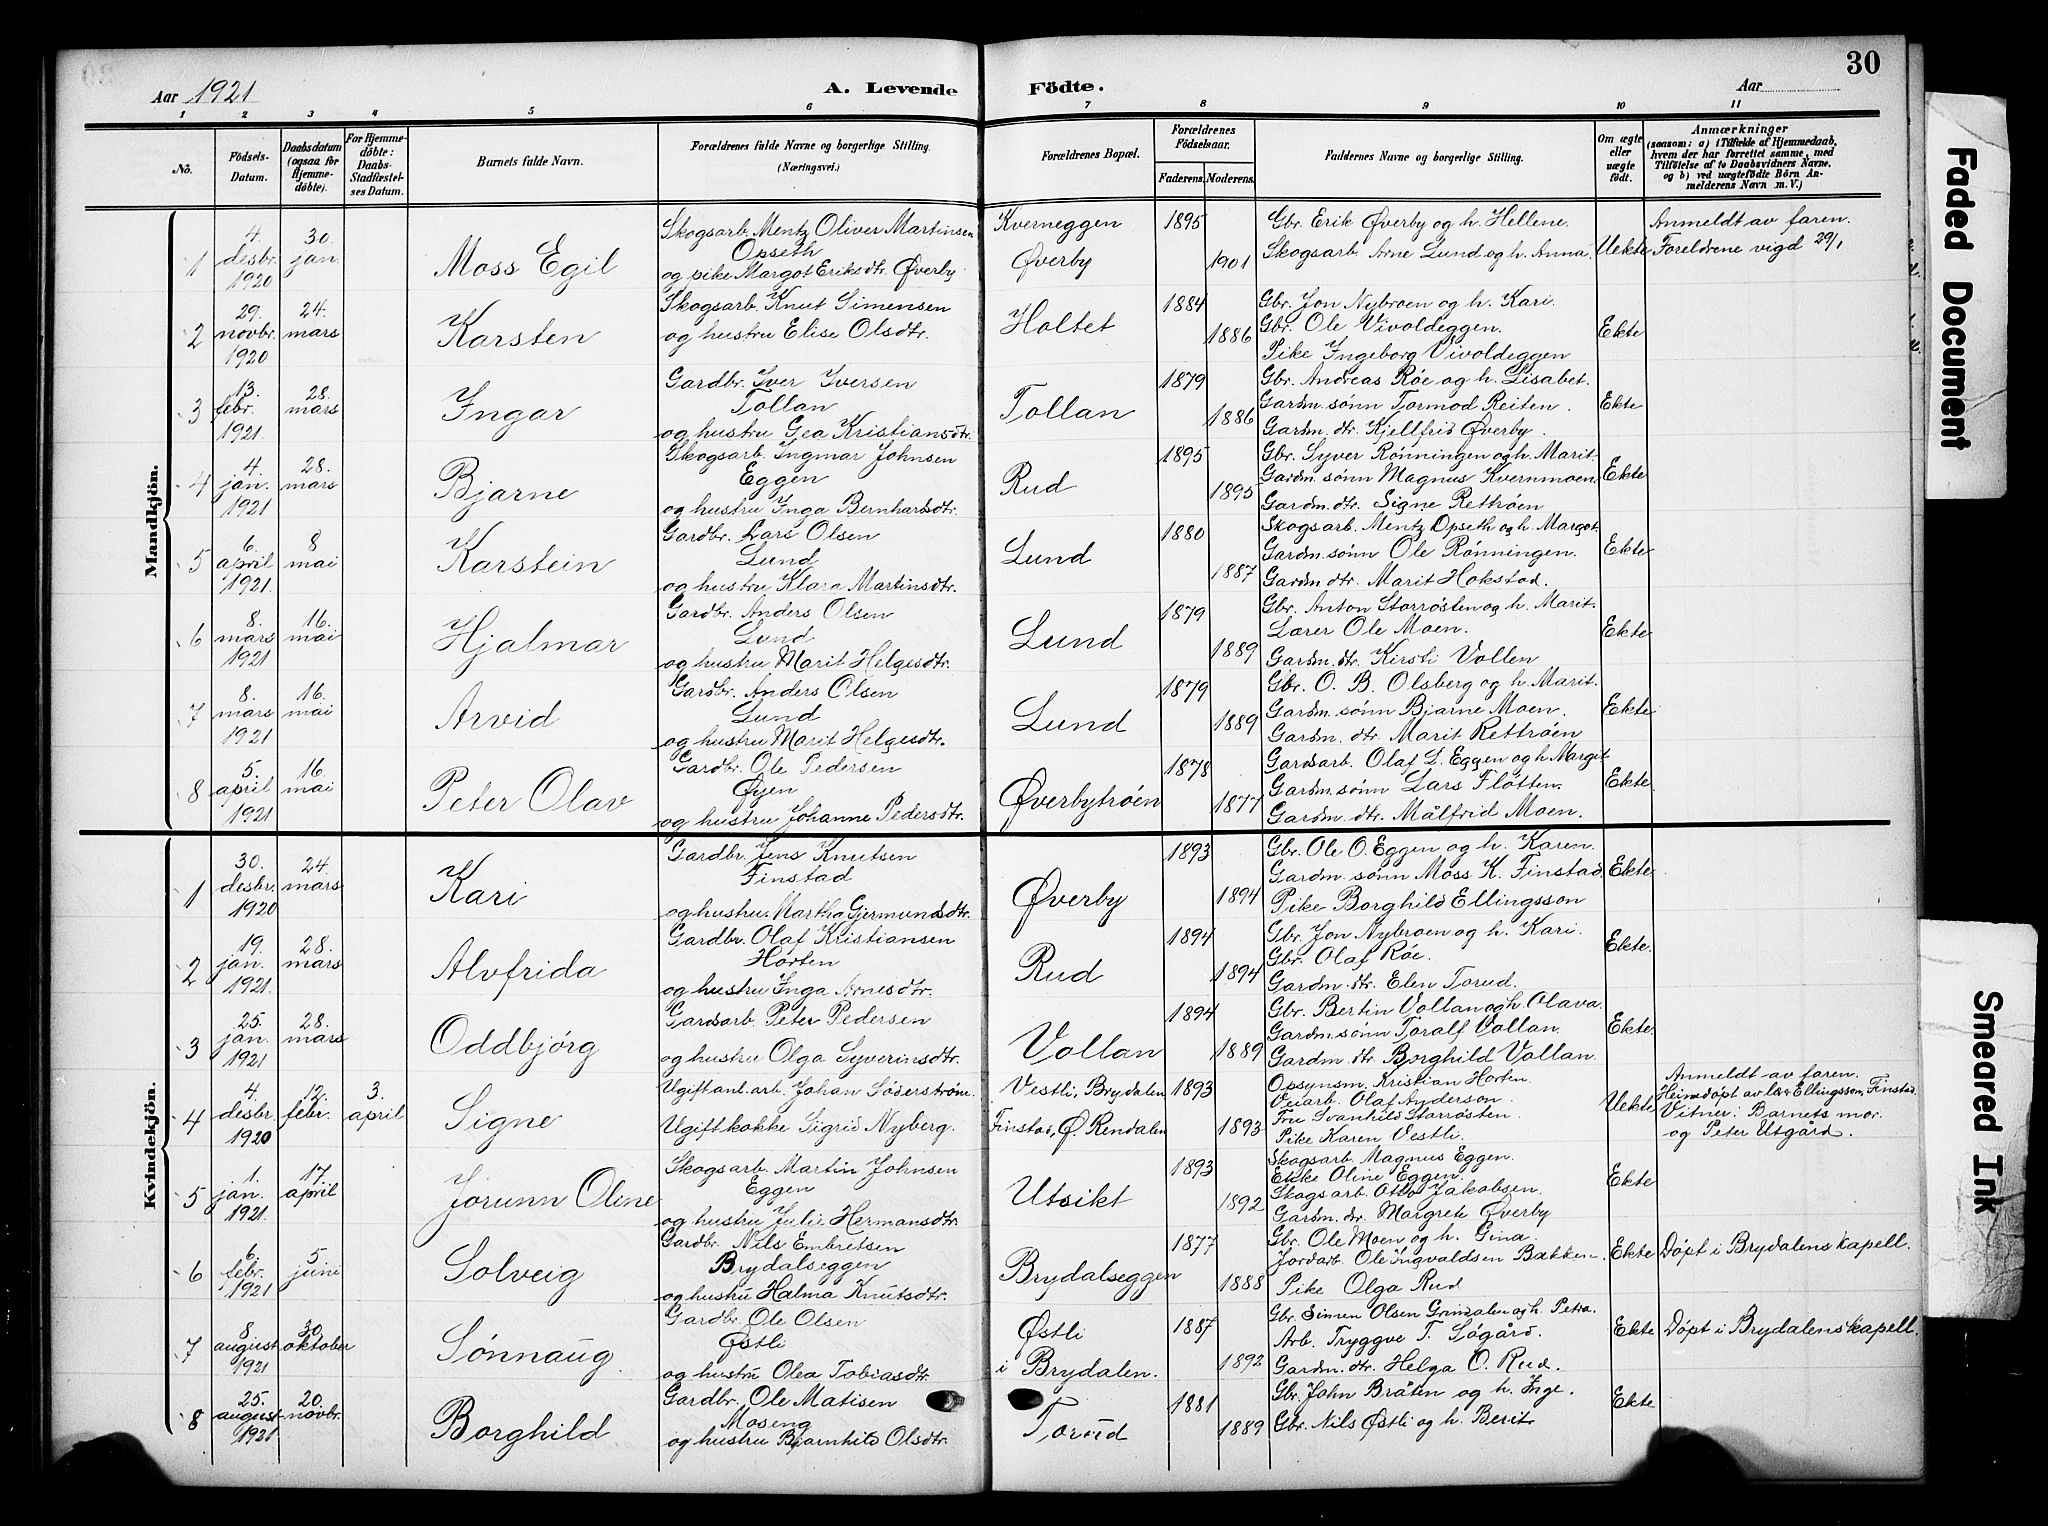 30
Aar 1921
A. Levende Födte.
Aar
1 2 3 4 5 6 7 8 9 10 11
No.
Födsels-Datum.
Daabsdatum (ogsaa for Hjemme-döbte).
For Hjemme-döbte: Daabs-Stadfæstel-ses Datum.
Barnets fulde Navn.
Forældrenes fulde Navne og borgerlige Stilling. (Næringsvei.)
Forældrenes Bopæl.
Forældrenes Födselsaar.
Faderens. Moderens.
Faddernes Navne og borgerlige Stilling.
Om ægte eller uægte födt.
Anmærkninger
(saasom: a) i Tilfælde af Hjemmedaab, hvem der har forrettet samme, med Tilföielse af to Daabsvidners Navne, og b) ved uægtefödte Börn An-melderens Navn m. V.)
Mandkjön.
1
4. desbr. 1920
30. jan.
Moss Egil
Skogsarb. Mentz Oliver Martinsen
Opseth
og pike Margot Eriksdtr. Øverby
Kverneggen
Øverby
1895
1901
Gbr. Erik Øverby og h. Hellene.
Skogsarb. Arne Lund og h. Anna.
Uekte
Anmeldt av faren.
Foreldrene vigd 29/1
2
29. novbr. 1920
24. mars
Karsten
Skogsarb. Knut Simensen
og hustru Elise Olsdtr.
Holtet
1884
1886
Gbr. Jon Nybroen og h. Kari.
Gbr. Ole Vivoldeggen.
Pike Ingeborg Vivoldeggen
Ekte
3
13. febr. 1921.
28. mars
Ingar
Gardbr. Iver Iversen
Tollan
og hustru Gea Kristiansdtr.
Tollan
1879
1886
Gbr. Andreas Røe og h. Lisabet.
Gardm. sønn Tormod Reiten.
Gardm. dtr. Kjellfrid Øverby.
Ekte
4
4. jan. 1921
28. mars
Bjarne
Skogsarb. Ingmar Johnsen
Eggen
og hustru Inga Bernhardsdtr.
Rud
1895
1895
Gbr. Syver Rønningen og h. Marit.
Gardm. sønn Magnus Kvernmoen.
Gardm. dtr. Signe Rettrøen
Ekte
5
6. april 1921.
8 mai
Karstein
Gardbr. Lars Olsen
Lund
og hustru Klara Martinsdtr.
Lund
1880
1887
Skogsarb. Mentz Opseth og h. Margot.
Gardm. sønn Ole Rønningen.
Gardm. dtr. Marit Hokstad.
Ekte
6
8. mars 1921
16. mai
Hjalmar
Gardbr. Anders Olsen
Lund
og hustru Marit Helgesdtr.
Lund
1879
1889
Gbr. Anton Storrøsten og h. Marit.
Lærer Ole Moen.
Gardm. dtr. Kirsti Vollen
Ekte
7
8. mars 1921
16. mai
Arvid
Gardbr. Anders Olsen
Lund
og hustru Marit Helgesdtr.
Lund
1879
1889
Gbr. O. B. Olsberg og h. Marit.
Gardm. sønn Bjarne Moen.
Gardm. dtr. Marit Rettrøen
Ekte
8
5. april 1921
16. mai
Peter Olav
Gardbr. Ole Pedersen
Øyen
og hustru Johanne Pedersdtr.
Øverbytrøen
1878
1877
Gardsarb. Olaf L. Eggen og h Margit
Gardm. sønn Lars Fløtten.
Gardm. dtr. Målfrid Moen.
Ekte
Kvindekjön.
1
30. desbr. 1920
24. mars
Kari
Gardbr. Jens Knutsen
Finstad
og hustru Martha Gjermundsdtr.
Øverby
1893
1894
Gbr. Ole O. Eggen og h. Karen.
Gardm. sønn Moss K. Finstad
Pike Borghild Ellingsson
Ekte
2
19. jan. 1921.
28. mars
Alvfrida
Gardbr. Olaf Kristiansen
Horten
og hustru Inga Arnesdtr.
Rud
1894
1894
Gbr. Jon Nybroen og h. Kari.
Gbr. Olaf Røe.
Gardm. dtr. Elen Torud.
Ekte.
3
25. jan. 1921
28. mars
Oddbjørg
Gardsarb. Peter Pedersen
og hustru Olga Syverinsdtr.
Vollan
1894
1889
Gbr. Bertin Vollan og h. Olava.
Gardm. sønn Toralf Vollan.
Gardm. dtr. Borghild Vollan.
Ekte.
4
4. desbr 1920
12. febr.
3. april
Signe
Ugift anl. arb. Johan Søderstrøm.
Ugift kokke Sigrid Nyberg.
Vestli, Brydalen
Finstad, Ø. Rendalen
1893
1893
Opsynsm. Kristian Horten.
Veiarb. Olaf Anderson.
Fru Svanhild Storrøsten.
Pike Karen Vestli.
Uekte
Anmeldt av faren.
Heimedøpt av lær. Ellingsson, Finstad
Vitner: Barnets mor.
og Peter Utgård.
5
1. jan. 1921
17. april
Jorunn Oline
Skogsarb. Martin Johnsen
Eggen
og hustru Julie Hermansdtr.
Utsikt
1893
1892
Skogsarb. Magnus Eggen.
Enke Oline Eggen.
Skogsarb. Otto Jakobsen.
Gardm. dtr. Margrete Øverby
Ekte
6
6. febr. 1921
5 juni
Solveig
Gardbr. Nils Embretsen
Brydalseggen
og hustru Halma Knutsdtr.
Brydalseggen
1877
1888
Gbr. Ole Moen og h. Gina.
Jordarb. Ole Ingvaldsen Bakken
Pike Olga Rud
Ekte
Døpt i Brydalens kapell.
7
8 august 1921
30. oktober
Sønnaug.
Gardbr. Ole Olsen
Østli
og hustru Olea Tobiasdtr.
Østli
i Brydalen.
1887
1892
Gbr. Simen Olsen Grindalen og h. Petra.
Arb. Tryggve T. Søgård.
Gardm. dtr. Helga O. Rud.
Ekte
Døpt i Brydalens kapell.
8
25. august 1921
20. novbr.
Borghild
Gardbr. Ole Matisen
Moseng
og hustru Bjarnhild Olsdtr.
Torud
1881
1889
Gbr. John Bråten og h. Inge.
Gbr. Nils Østli og h. Berit
Ekte
Faded Document
Smeared Ink